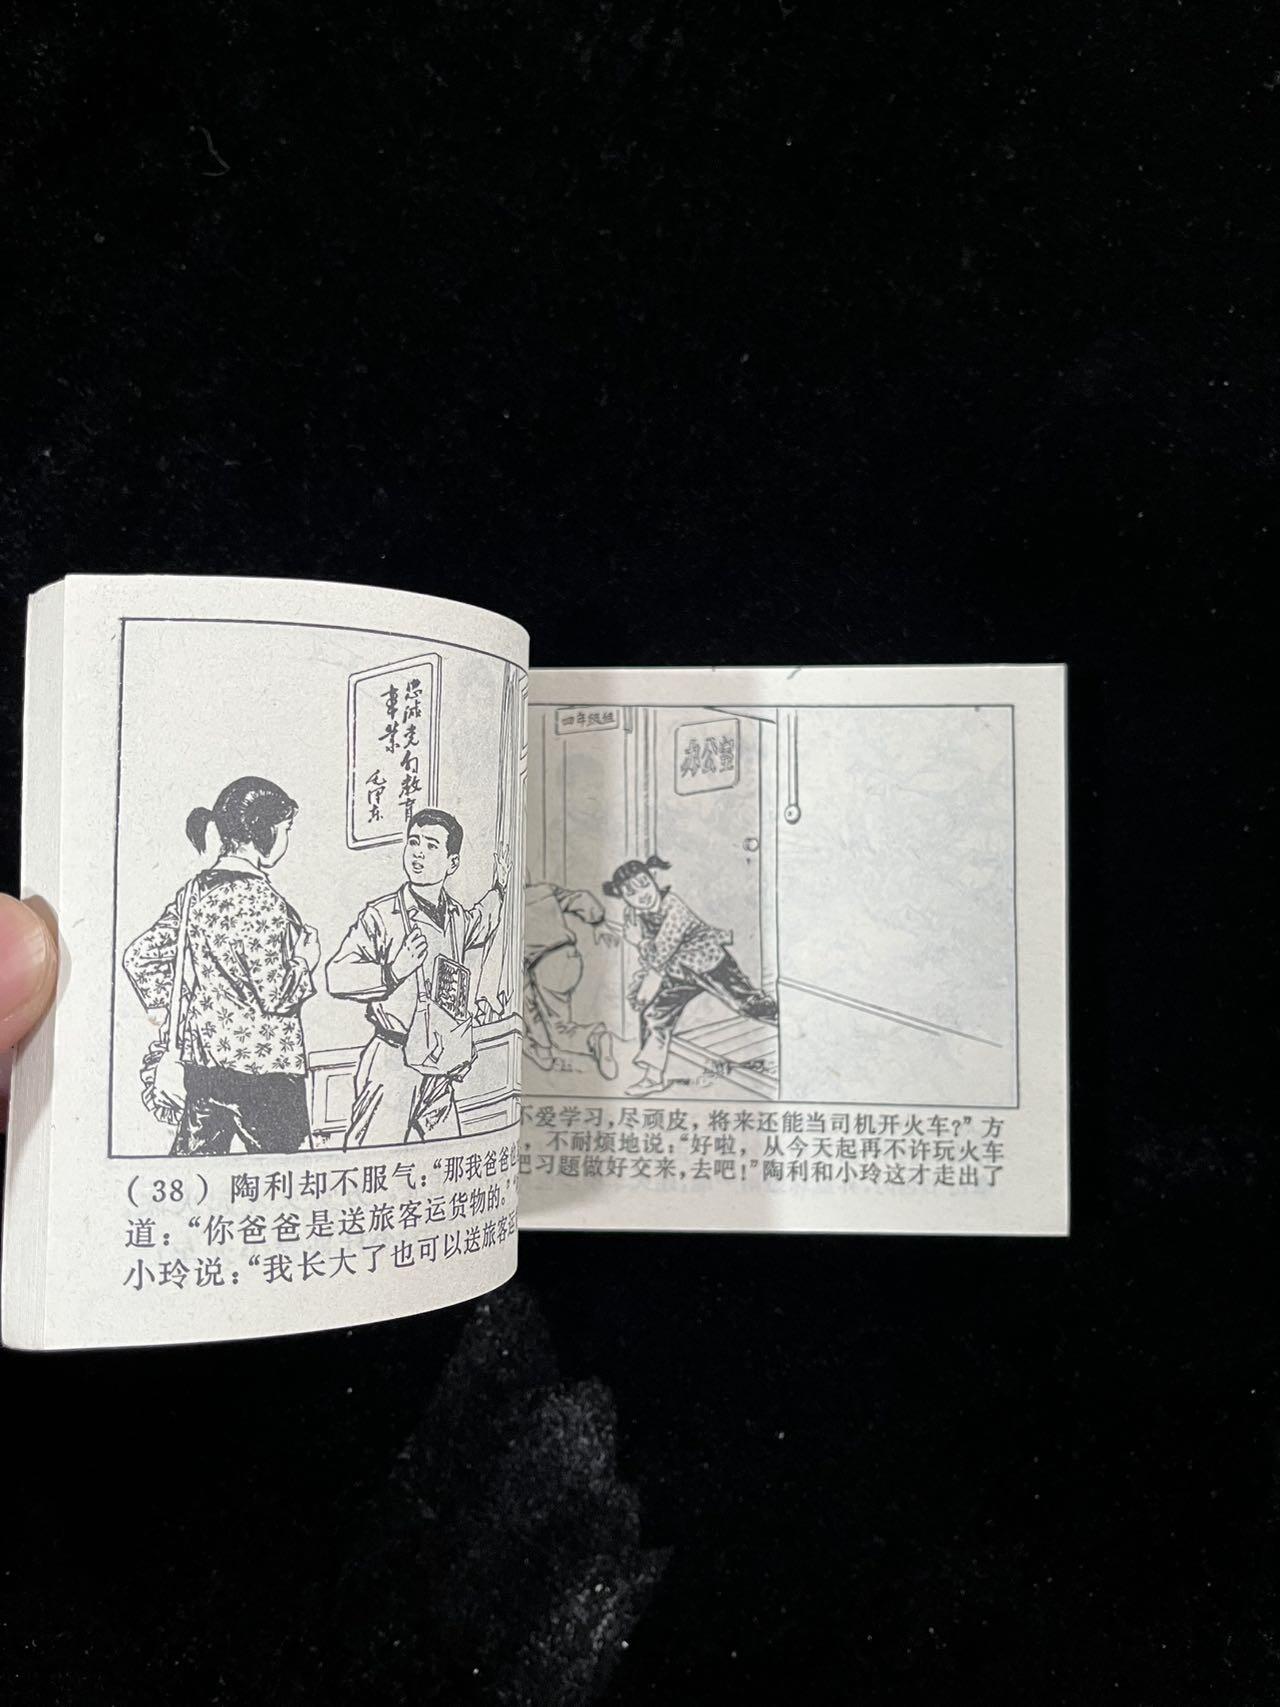 忠诚党的教育
事业
毛泽东
(38) 陶利却不服气：“那我爸爸
道：“你爸爸是送旅客运货物的。”
小玲说：“我长大了也可以送旅客运
四年级组
办公室
不爱学习，尽顽皮，将来还能当司机开火车？”方
，不耐烦地说：“好啦，从今天起再不许玩火车
把习题做好交来，去吧！”陶利和小玲这才走出了